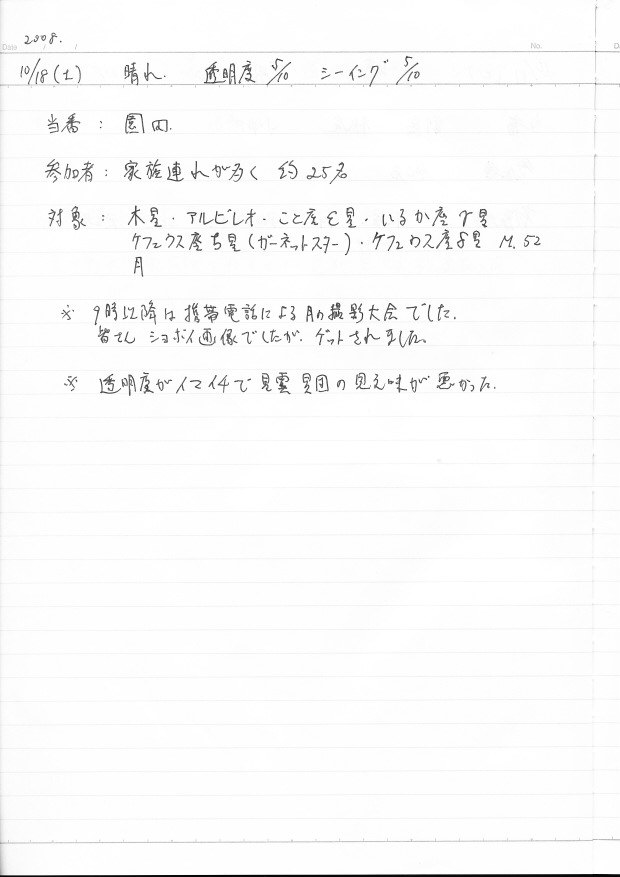 2008.
Date
No.
10/18(土) 晴れ. 透明度 5/10 シーイング 5/10
当番: 園田.
参加者: 家族連れが多く 約25名
対象: 木星・アルビレオ・こと座ε星・いるか座γ星
ケフェウス座 星(ガーネットスター)・ケフェウス座δ星 M.52
月
※ 9時以降は携帯電話による月の撮影大会でした.
皆さん ショボイ画像でしたが、ゲットされました。
※ 透明度がイマイチで 星雲星団の見え味が悪かった.